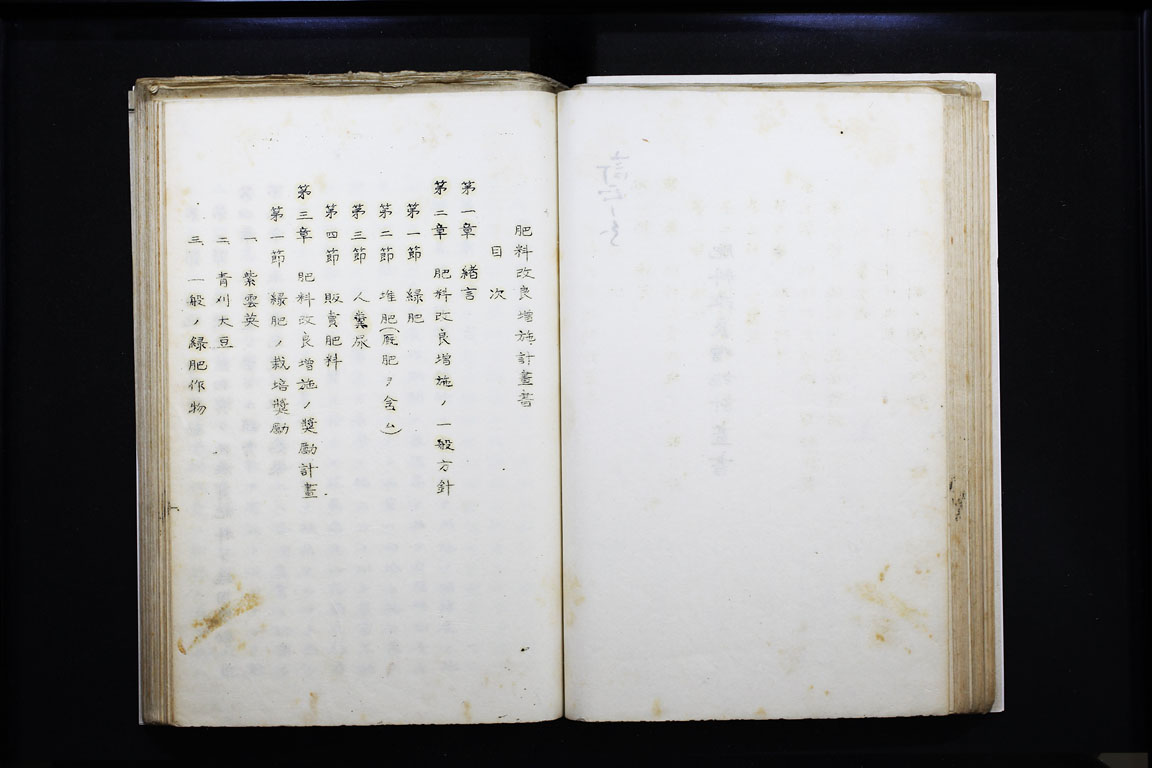 肥料改良増施計畫書
目次
第一章 緒言
第二章 肥料改良増施ノ一般方針
第一節 緑肥
第二節 堆肥(厩肥ヲ含ム)
第三節 人糞尿
第四節 販賣肥料
第三章 肥料改良増施ノ奬勵計畫
第一節 緑肥ノ栽培奬勵
一、紫雲英
二、青刈大豆
三、一般ノ緑肥作物